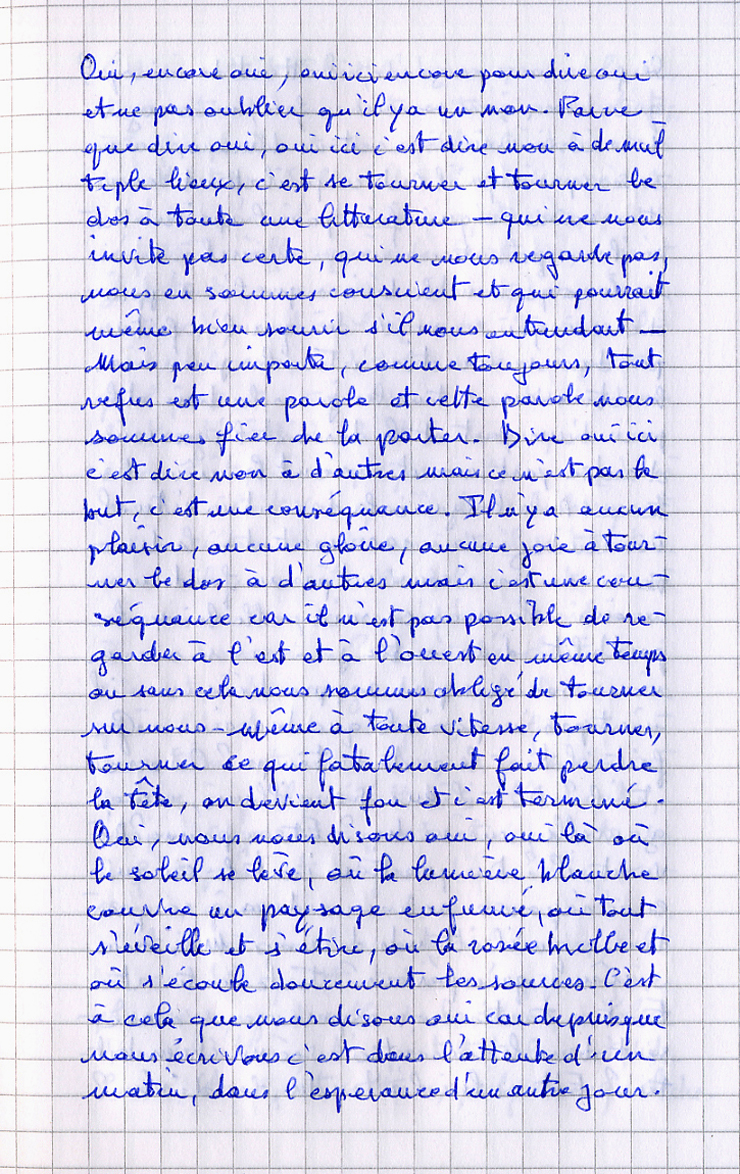 Oui, encore oui, oui ici encore pour dire oui
et ne pas oublier qu'il y a un non. Parce
que dire oui, oui ici c'est dire non à de mul-
tiple lieux, c'est se tourner et tourner le
dos à toute une litterature – qui ne nous
invite pas certe, qui ne nous regarde pas,
nous en sommes conscient et qui pourrait
même bien sourir s'il nous entendait –
Mais peu importe, comme toujours, tout
refus est une parole et cette parole nous
sommes fier de la porter. Dire oui ici
c'est dire non à d'autres mais ce n'est pas le
but, c'est une conséquance. Il n'y a aucun
plaisir, aucune gloire, aucune joie à tour-
ner le dos à d'autres mais c'est une con-
séquance car il n'est pas possible de re-
garder à l'est et à l'ouest en même temps
ou sans cela nous sommes obligé de tourner
sur nous-même à toute vitesse, tourner,
tourner ce qui fatalement fait perdre
la tête, on devient fou et c'est terminé.
Oui, nous nous disons oui, oui là où
le soleil se lève, où la lumière blanche
couvre un paysage enfumé, où tout
s'éveille et s'étire, où la rosée brille et
où s'écoule doucement les sources. C'est
à cela que nous disons oui car depuis que
nous écrivons c'est dans l'attente d'un
matin, dans l'esperance d'un autre jour.